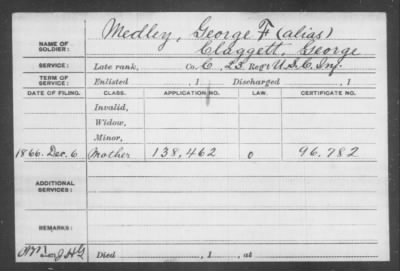 NAME OF SOLDIER: Medley, George F (alias)
Claggett, George
SERVICE: Late rank, Co. C, 23 Reg't U.S.C. Inf.
TERM OF SERVICE: Enlisted , 1 Discharged , 1
DATE OF FILING. CLASS. APPLICATION NO. LAW. CERTIFICATE NO.
Invalid,
Widow,
Minor,
1866. Dec. 6 Mother 138,462 0 96,782
ADDITIONAL SERVICES:
REMARKS:
Died , 1 , at